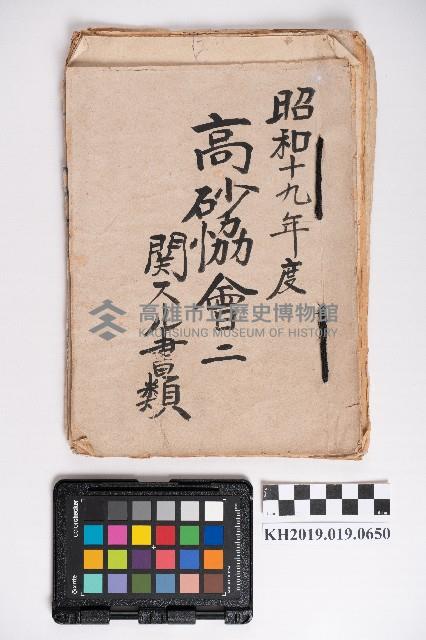 昭和十九年度
高砂協會ニ
関スル書類
高雄市立歷史博物館
KAOHSIUNG MUSEUM OF HISTORY
KH2019.019.0650